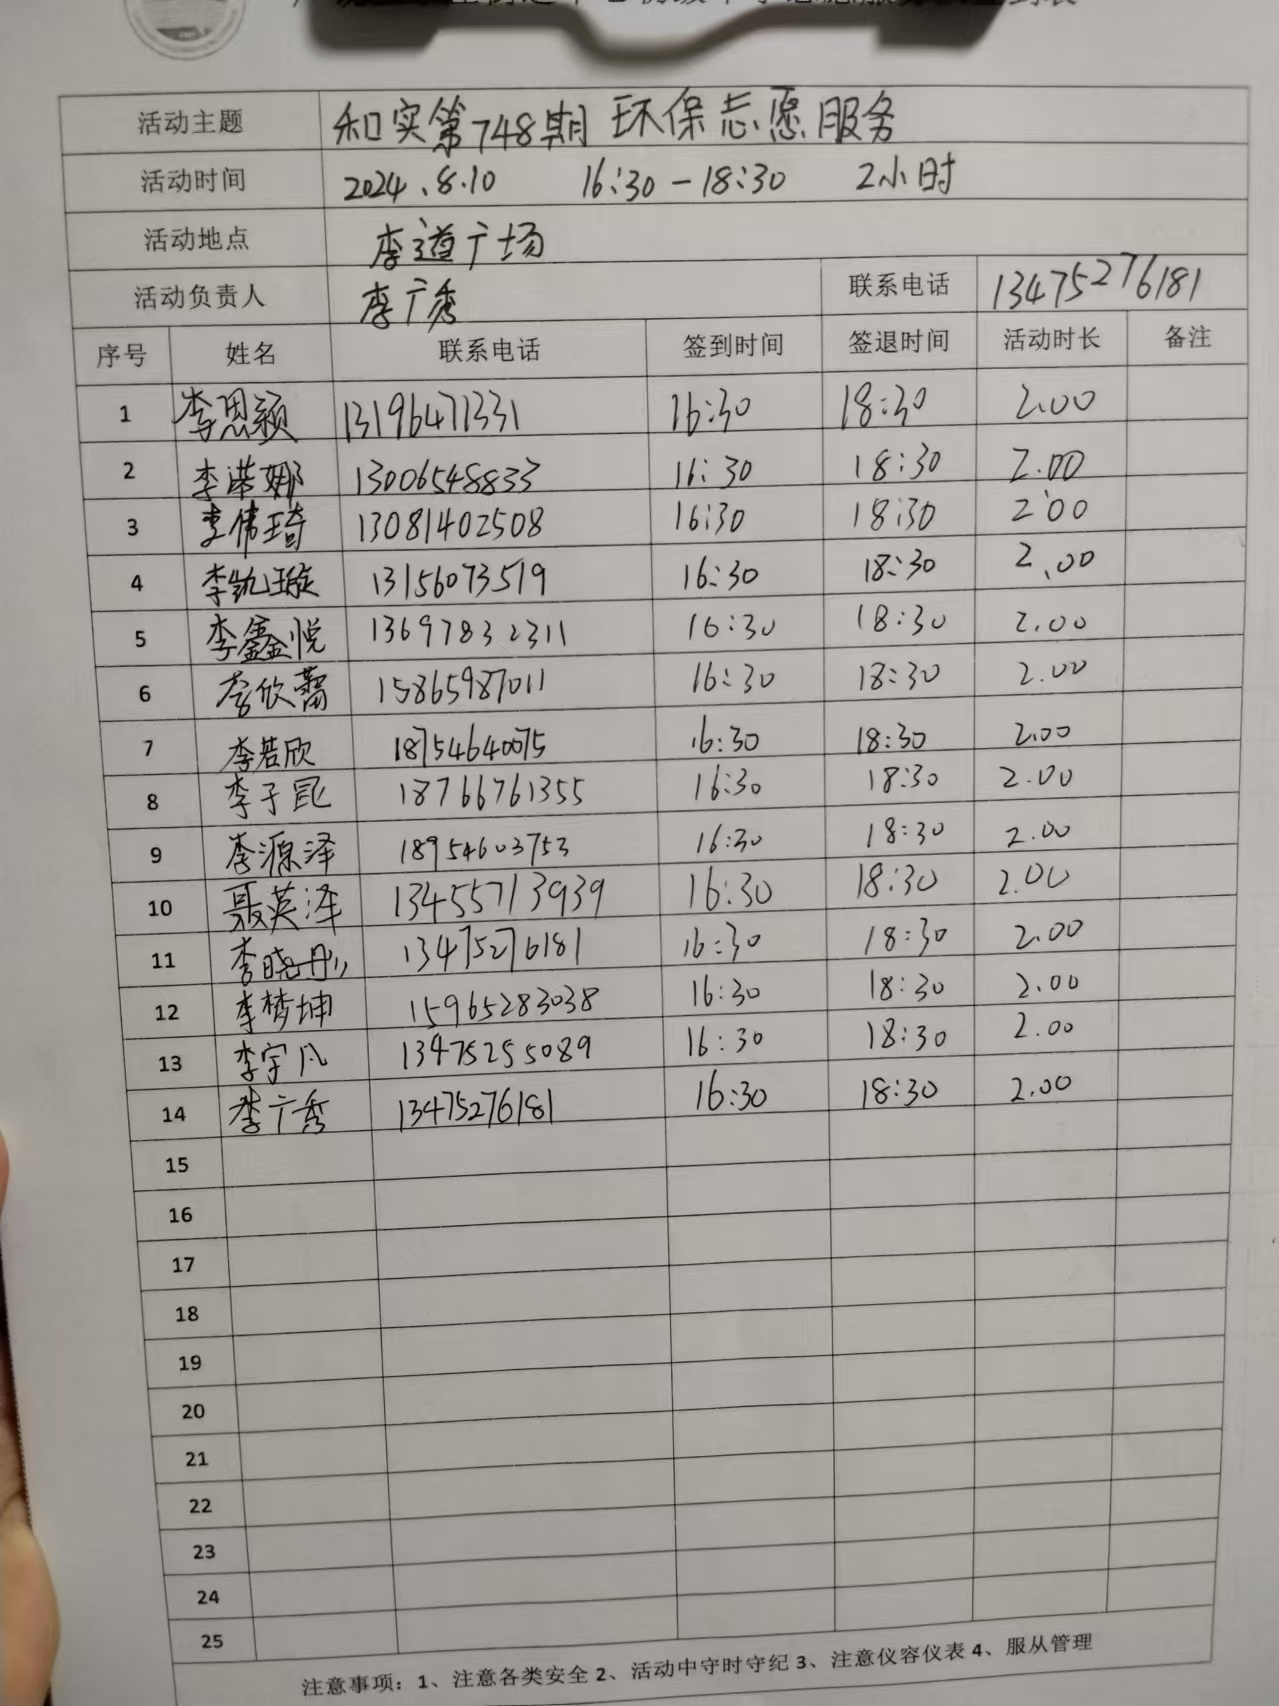 活动主题 和实第748期 环保志愿服务
活动时间 2024.8.10 16:30-18:30 2小时
活动地点 李道广场
活动负责人 李广秀 联系电话 13475276181
序号 姓名 联系电话 签到时间 签退时间 活动时长 备注
1 李思颖 13196471331 16:30 18:30 2.00
2 李诺娜 13006548833 16:30 18:30 2.00
3 李伟琦 13081402508 16:30 18:30 2.00
4 李凯璇 13156073519 16:30 18:30 2.00
5 李鑫悦 13697832311 16:30 18:30 2.00
6 李欣蕾 15865987011 16:30 18:30 2.00
7 李若欣 18754640075 16:30 18:30 2.00
8 李子昆 18766761355 16:30 18:30 2.00
9 李源泽 18954603753 16:30 18:30 2.00
10 聂英泽 13455713939 16:30 18:30 2.00
11 李晓彤 13475276181 16:30 18:30 2.00
12 李梦坤 15965283038 16:30 18:30 2.00
13 李宇凡 13475255089 16:30 18:30 2.00
14 李广秀 13475276181 16:30 18:30 2.00
15
16
17
18
19
20
21
22
23
24
25
注意事项：1、注意各类安全 2、活动中守时守纪 3、注意仪容仪表 4、服从管理